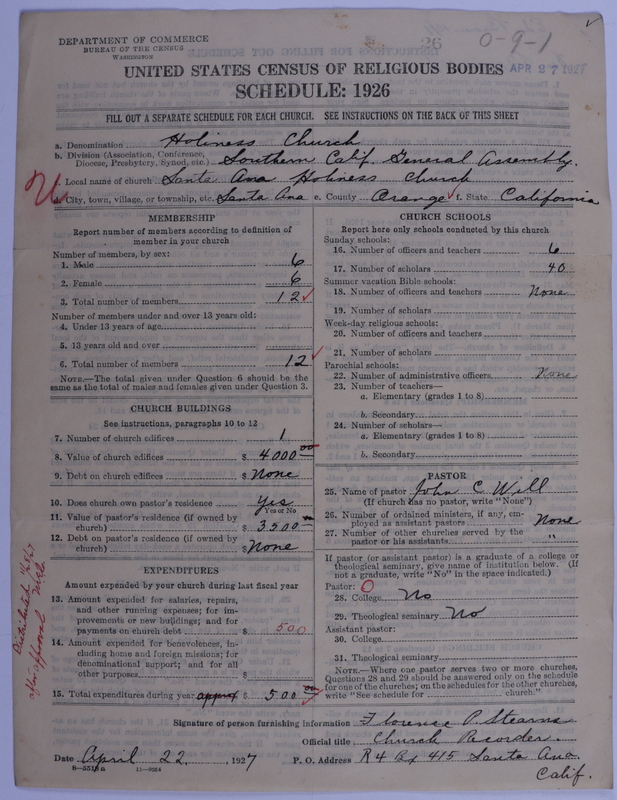 DEPARTMENT OF COMMERCE
BUREAU OF THE CENSUS
WASHINGTON
26
0-9-1
APR 27 1927
UNITED STATES CENSUS OF RELIGIOUS BODIES
SCHEDULE: 1926
FILL OUT A SEPARATE SCHEDULE FOR EACH CHURCH. SEE INSTRUCTIONS ON THE BACK OF THIS SHEET
a. Denomination Holiness Church
b. Division (Association, Conference, Diocese, Presbytery, Synod, etc.) Southern Calif. General Assembly.
c. Local name of church Santa Ana Holiness Church
d. City, town, village, or township, etc. Santa Ana e. County Orange f. State California
MEMBERSHIP
Report number of members according to definition of
member in your church
Number of members, by sex:
1. Male 6
2. Female 6
3. Total number of members 12
Number of members under and over 13 years old:
4. Under 13 years of age
5. 13 years old and over
6. Total number of members 12
NOTE.—The total given under Question 6 should be the
same as the total of males and females given under Question 3.
CHURCH BUILDINGS
See instructions, paragraphs 10 to 12
7. Number of church edifices 1
8. Value of church edifices $ 4000 00
9. Debt on church edifices $ None
10. Does church own pastor's residence Yes
Yes or No
11. Value of pastor's residence (if owned by
church) $ 3500
12. Debt on pastor's residence (if owned by
church) $ None
EXPENDITURES
Amount expended by your church during last fiscal year
13. Amount expended for salaries, repairs,
and other running expenses; for im-
provements or new buildings; and for
payments on church debt $ 500
14. Amount expended for benevolences, in-
cluding home and foreign missions; for
denominational support; and for all
other purposes $
15. Total expenditures during year approx $ 500 00
CHURCH SCHOOLS
Report here only schools conducted by this church
Sunday schools:
16. Number of officers and teachers 6
17. Number of scholars 40
Summer vacation Bible schools:
18. Number of officers and teachers None
19. Number of scholars
Week-day religious schools:
20. Number of officers and teachers
21. Number of scholars
Parochial schools:
22. Number of administrative officers None
23. Number of teachers—
a. Elementary (grades 1 to 8)
b. Secondary
24. Number of scholars—
a. Elementary (grades 1 to 8)
b. Secondary
PASTOR
25. Name of pastor John C Will
(If church has no pastor, write "None")
26. Number of ordained ministers, if any, em-
ployed as assistant pastors None
27. Number of other churches served by the
pastor or his assistants "
If pastor (or assistant pastor) is a graduate of a college or
theological seminary, give name of institution below. (If
not a graduate, write "No" in the space indicated.)
Pastor: 0
28. College No
29. Theological seminary No
Assistant pastor:
30. College
31. Theological seminary
NOTE.—Where one pastor serves two or more churches,
Questions 28 and 29 should be answered only on the schedule
for one of the churches; on the schedules for the other churches,
write "See schedule for church."
Signature of person furnishing information Florence P. Stearns
Official title Church Recorder.
Date April 22, 1927 P. O. Address R 4 Bx 415 Santa Ana.
Calif.
11-9664